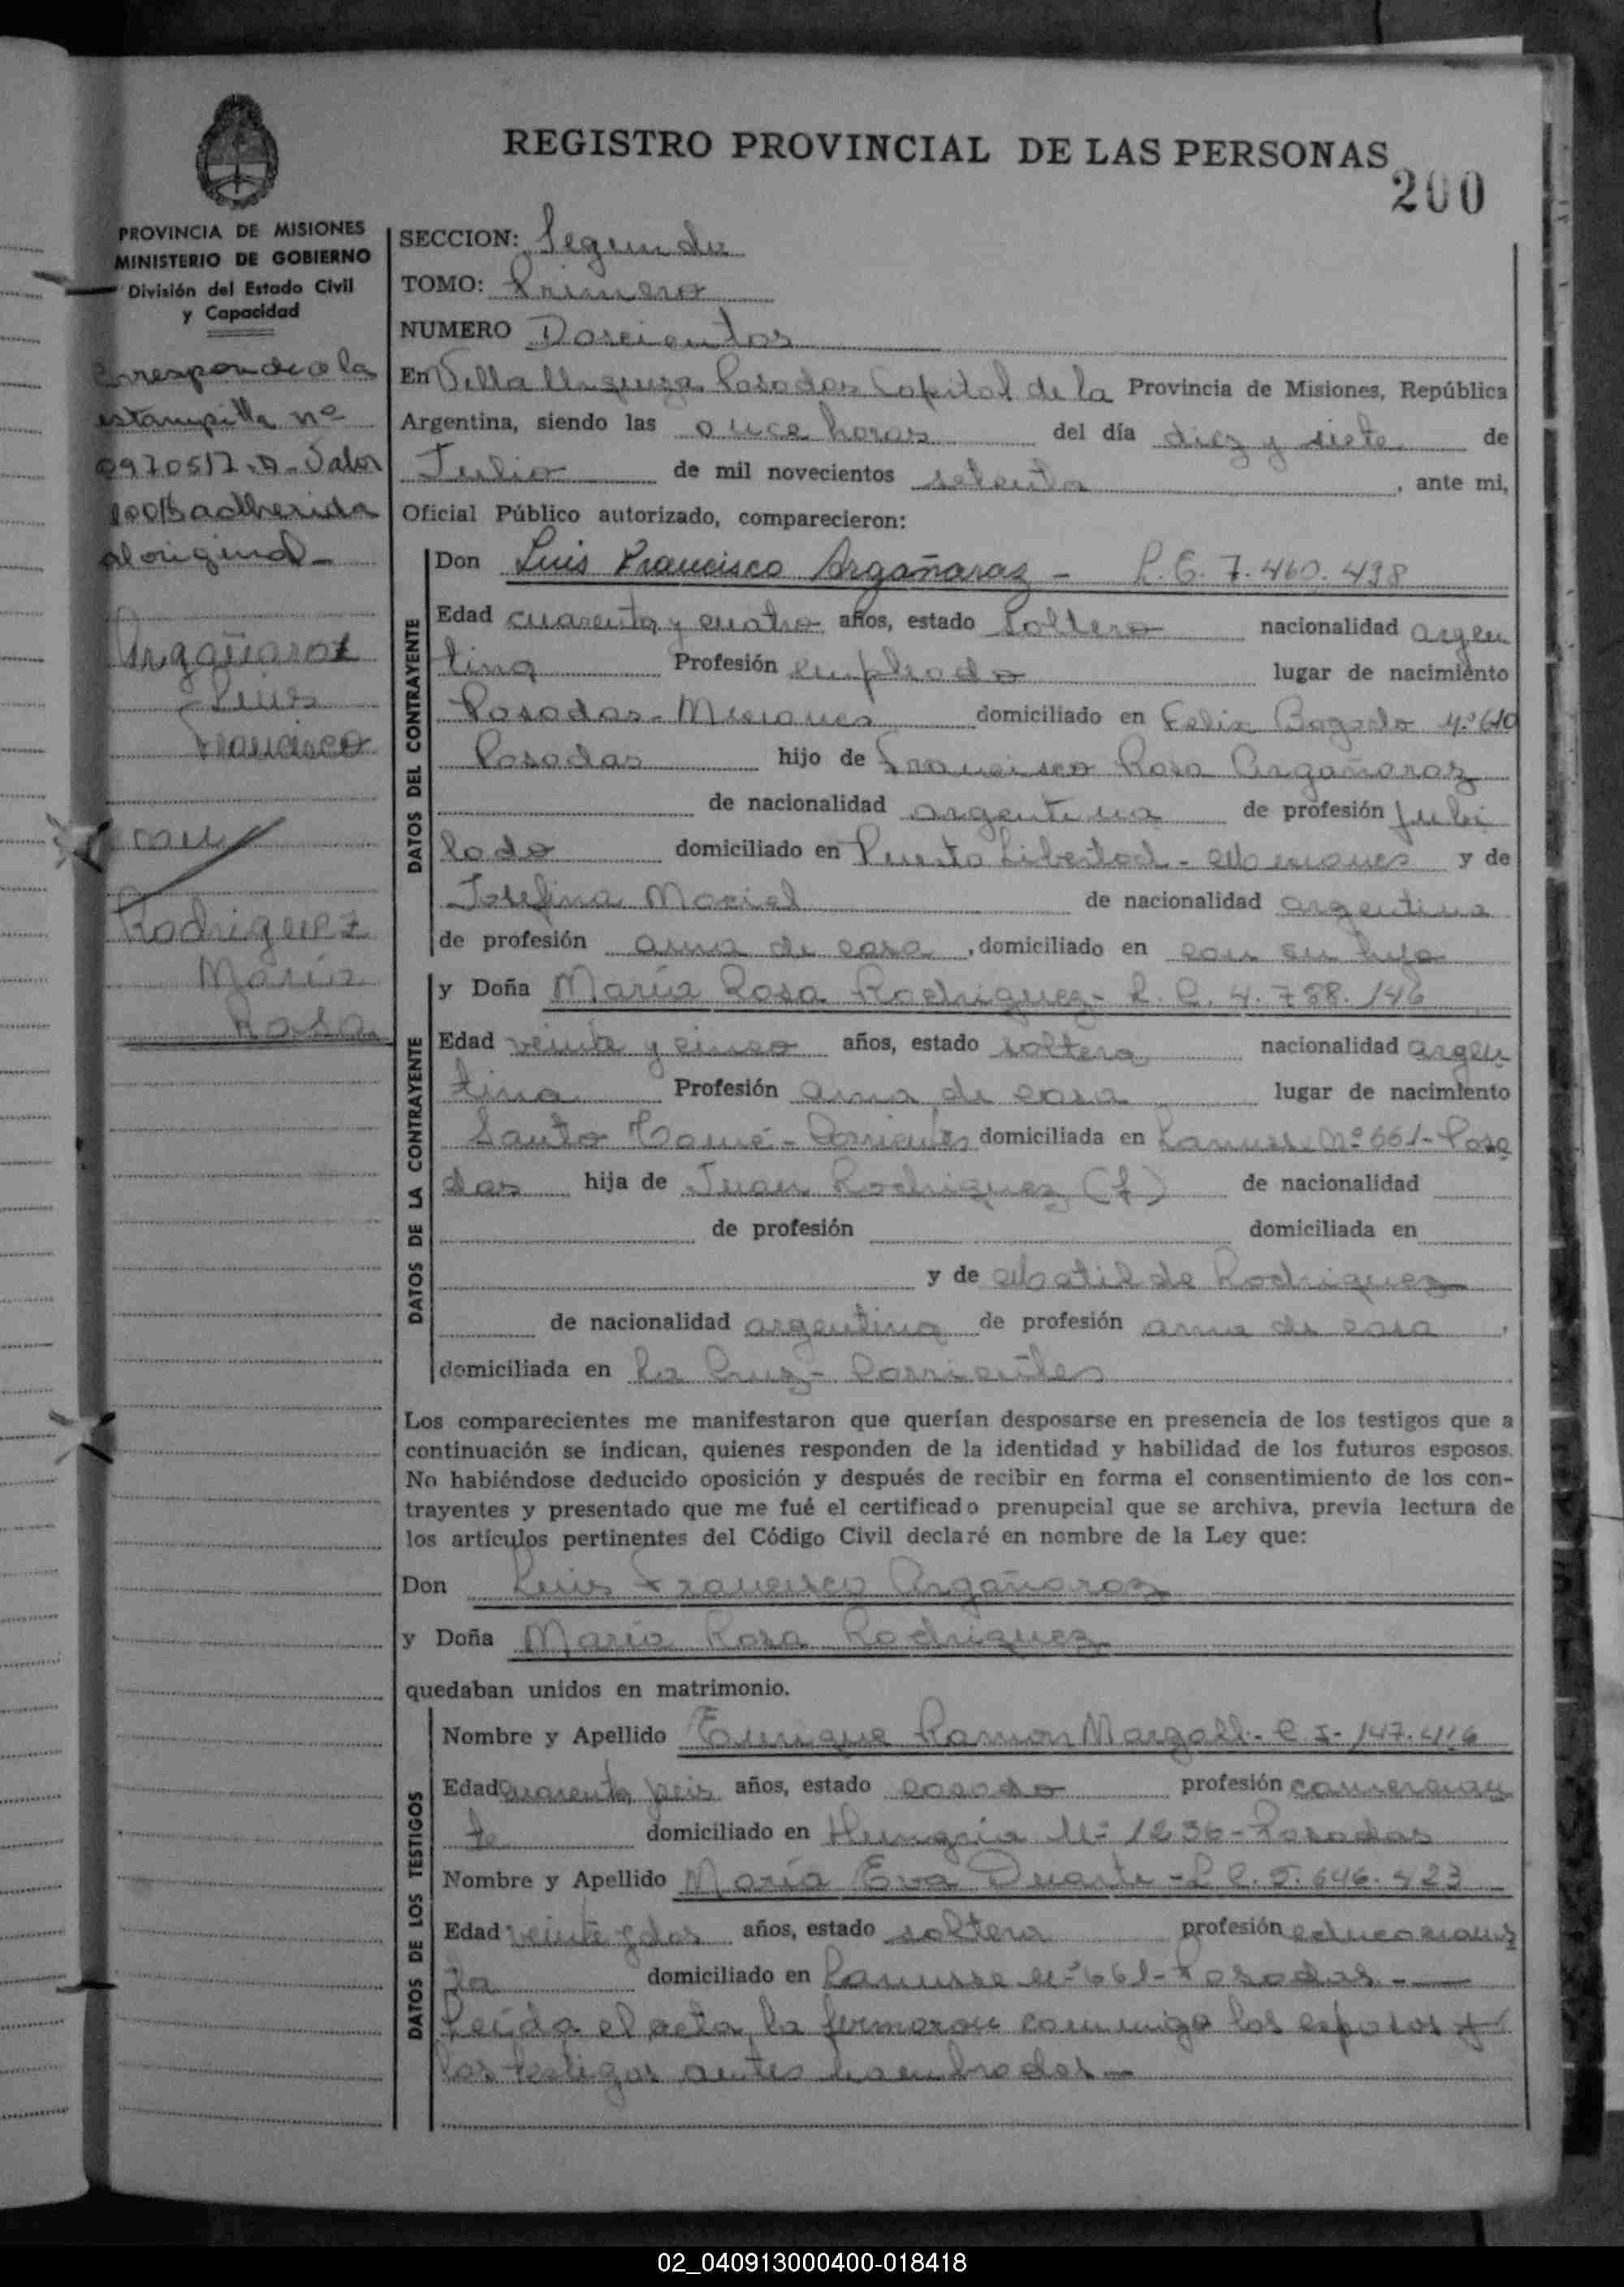 REGISTRO PROVINCIAL DE LAS PERSONAS
200
PROVINCIA DE MISIONES
MINISTERIO DE GOBIERNO
División del Estado Civil
y Capacidad
Corresponde a la
estampilla nº
0970517.A-Valor
100$ adherida
al original-
Argañaraz
Luis
Francisco
con
Rodriguez
María
Rosa
SECCION: Segunda
TOMO: Primero
NUMERO Doscientos
En Villa Urquiza Posadas Capital de la Provincia de Misiones, República
Argentina, siendo las once horas del día diez y siete de
Julio de mil novecientos setenta, ante mi,
Oficial Público autorizado, comparecieron:
DATOS DEL CONTRAYENTE
Don Luis Francisco Argañaraz - L.E. 7.460.498
Edad cuarenta y cuatro años, estado soltero nacionalidad argen
tina Profesión empleado lugar de nacimiento
Posadas - Misiones domiciliado en Felix Bogado Nº 610
Posadas hijo de Francisco Rosa Argañaraz
de nacionalidad argentina de profesión jubi
lado domiciliado en Puerto Libertad - Misiones y de
Josefina Maciel de nacionalidad argentina
de profesión ama de casa, domiciliado en con su hijo
DATOS DE LA CONTRAYENTE
y Doña María Rosa Rodriguez - L.C. 4.788.146
Edad veinte y cinco años, estado soltera nacionalidad argen
tina Profesión ama de casa lugar de nacimiento
Santo Tomé - Corrientes domiciliada en Lanusse Nº 661 - Posa
das hija de Juan Rodriguez (f) de nacionalidad
de profesión domiciliada en
y de Matilde Rodriguez
de nacionalidad argentina de profesión ama de casa,
domiciliada en La Cruz - Corrientes
Los comparecientes me manifestaron que querían desposarse en presencia de los testigos que a
continuación se indican, quienes responden de la identidad y habilidad de los futuros esposos.
No habiéndose deducido oposición y después de recibir en forma el consentimiento de los con-
trayentes y presentado que me fué el certificado prenupcial que se archiva, previa lectura de
los artículos pertinentes del Código Civil declaré en nombre de la Ley que:
Don Luis Francisco Argañaraz
y Doña María Rosa Rodriguez
quedaban unidos en matrimonio.
DATOS DE LOS TESTIGOS
Nombre y Apellido Enrique Ramon Margall - C.I. 147.416
Edad cuarenta, seis años, estado casado profesión comercian
te domiciliado en Hungria Nº 1236 - Posadas
Nombre y Apellido María Eva Duarte - L.C. 5.646.423
Edad veinte y dos años, estado soltera profesión educacionis
ta domiciliado en Lanusse Nº 661 - Posadas -
Leída el acta, la firmaron conmigo los esposos y
los testigos antes nombrados -
02_040913000400-018418